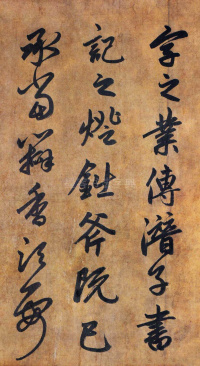 字之業傳潛子書
記之燈鈯斧既已
承當瓣香須要